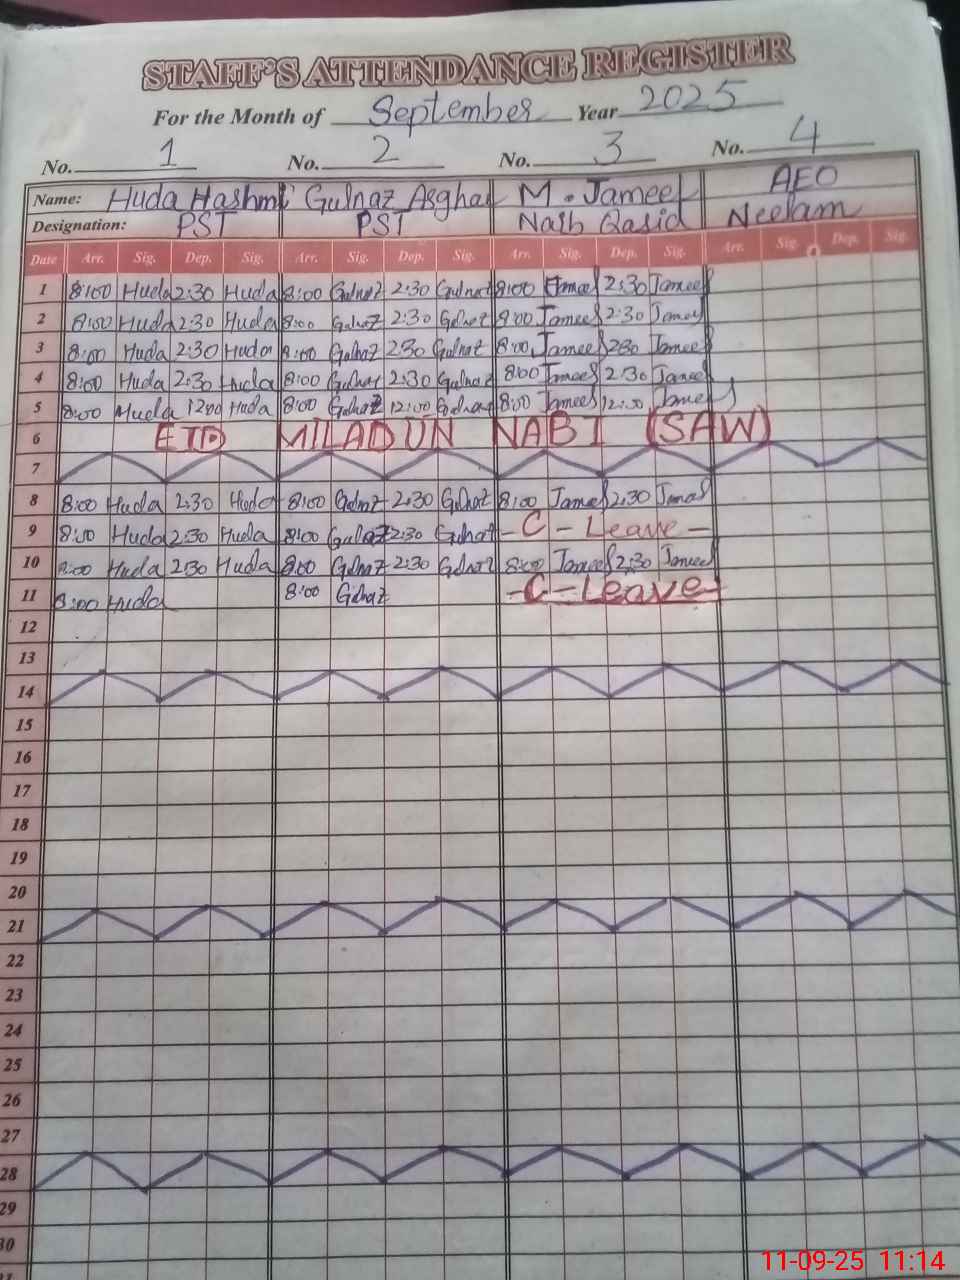 STAFF'S ATTENDANCE REGISTER
For the Month of September Year 2025
No. 1 No. 2 No. 3 No. 4
Name: Huda Hashmi Gulnaz Asghar M. Jameel AEO
Designation: PST PST Naib Qasid Neelam
Date Arr. Sig. Dep. Sig. Arr. Sig. Dep. Sig. Arr. Sig. Dep. Sig. Arr. Sig. Dep. Sig.
1 8:00 Huda 2:30 Huda 8:00 Gulnaz 2:30 Gulnaz 8:00 Jameel 2:30 Jameel
2 8:00 Huda 2:30 Huda 8:00 Gulnaz 2:30 Gulnaz 8:00 Jameel 2:30 Jameel
3 8:00 Huda 2:30 Huda 8:00 Gulnaz 2:30 Gulnaz 8:00 Jameel 2:30 Jameel
4 8:00 Huda 2:30 Huda 8:00 Gulnaz 2:30 Gulnaz 8:00 Jameel 2:30 Jameel
5 8:00 Huda 12:00 Huda 8:00 Gulnaz 12:00 Gulnaz 8:00 Jameel 12:00 Jameel
6 EID MILAD UN NABI (SAW)
7
8 8:00 Huda 2:30 Huda 8:00 Gulnaz 2:30 Gulnaz 8:00 Jameel 2:30 Jameel
9 8:00 Huda 2:30 Huda 8:00 Gulnaz 2:30 Gulnaz - C - Leave -
10 8:00 Huda 2:30 Huda 8:00 Gulnaz 2:30 Gulnaz 8:00 Jameel 2:30 Jameel
11 8:00 Huda 8:00 Gulnaz - C - Leave -
12
13
14
15
16
17
18
19
20
21
22
23
24
25
26
27
28
29
30
11-09-25 11:14